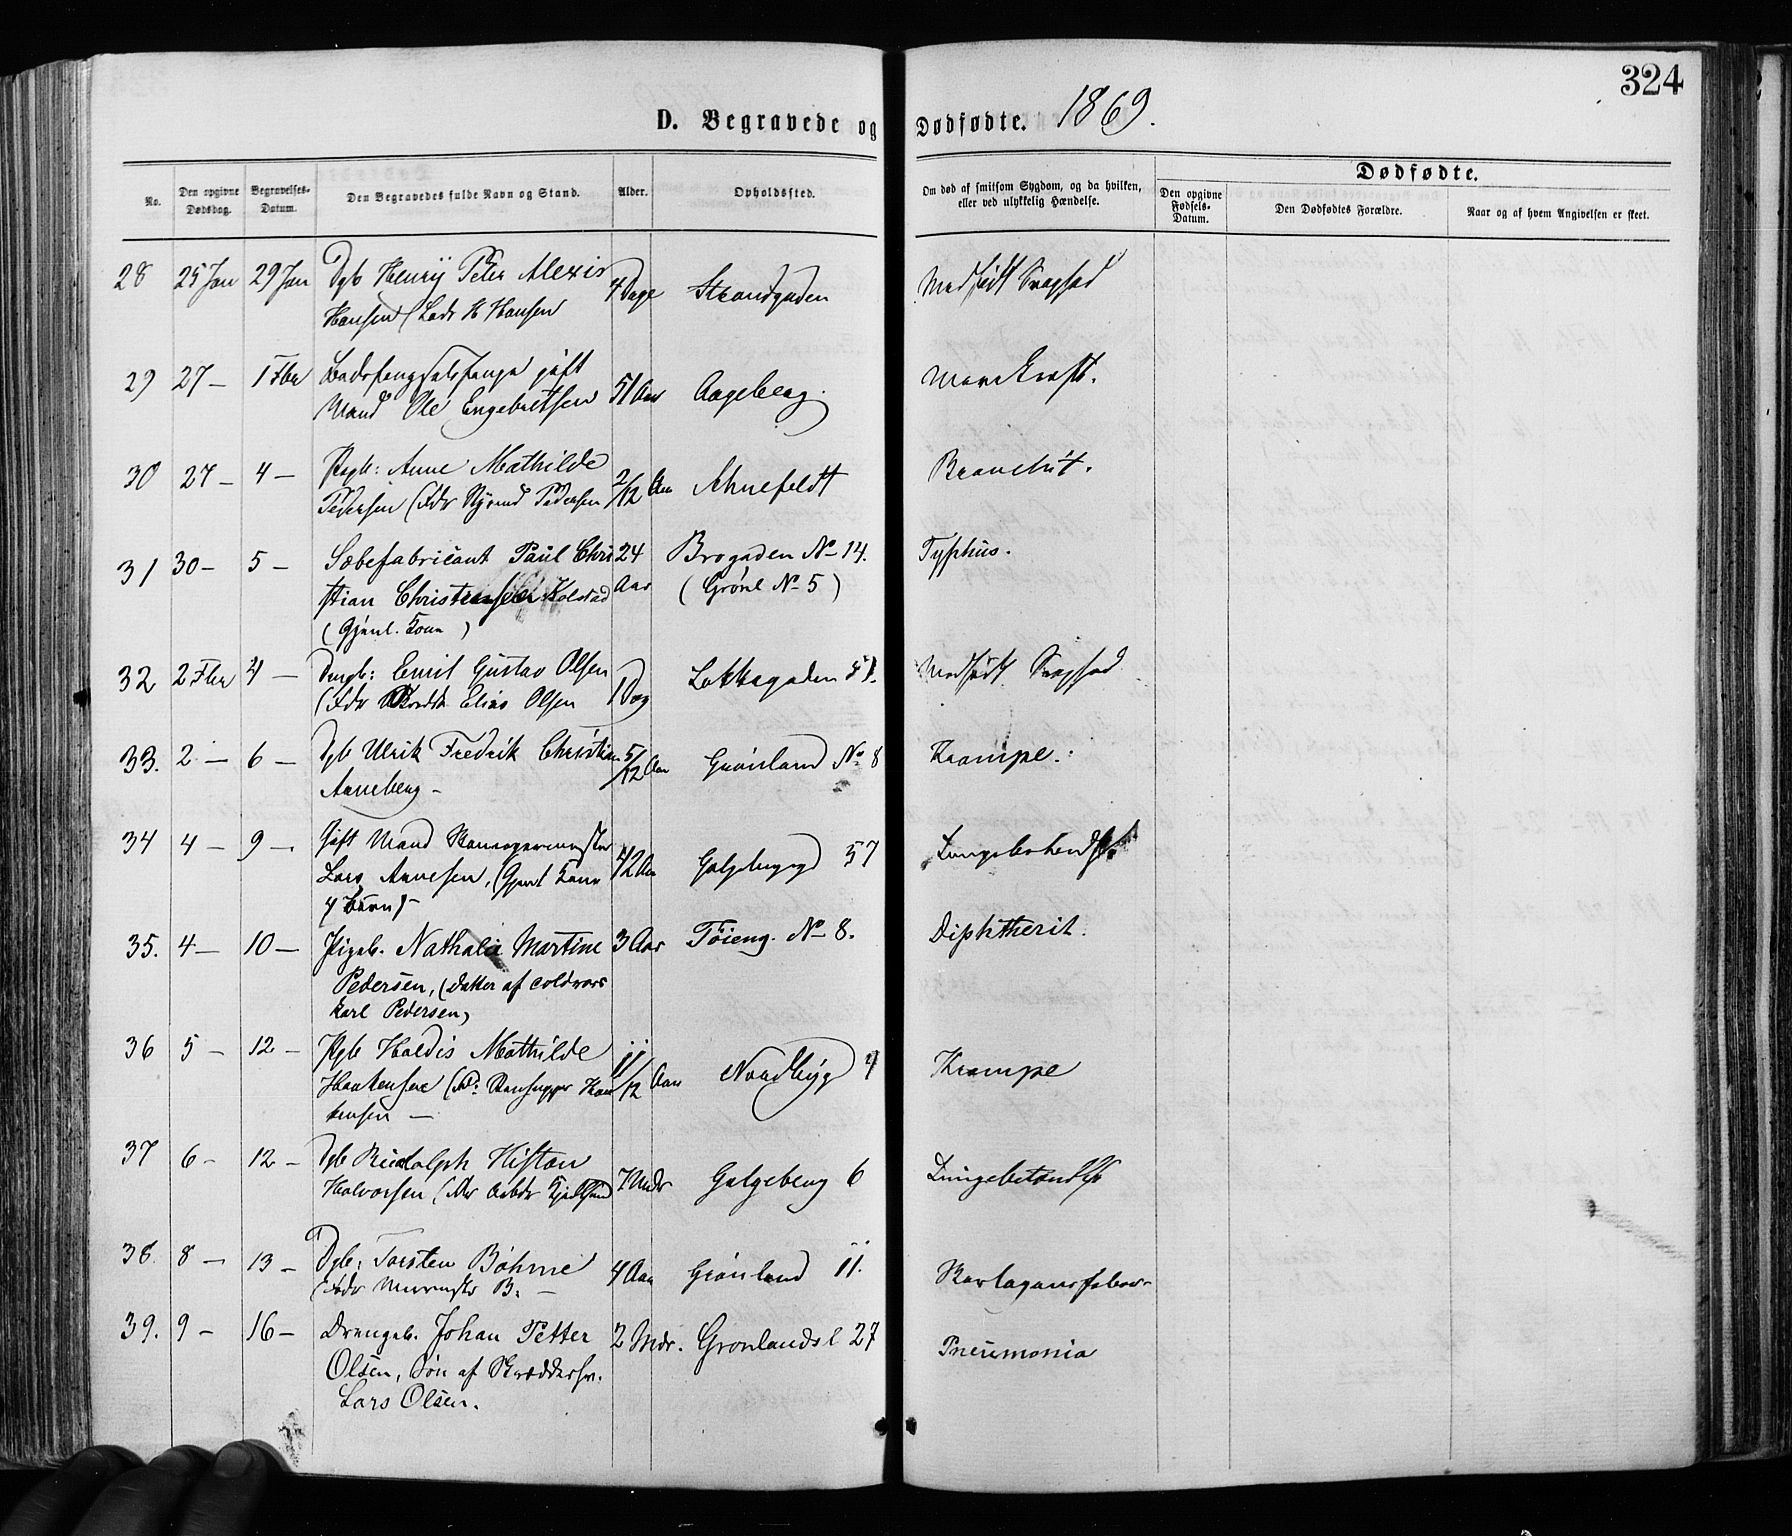 324
D. Begravede og Dødfødte. 1869.
No.
Den opgivne Dødsdag.
Begravelses-Datum.
Den Begravedes fulde Navn og Stand.
Alder.
Opholdssted.
Om død af smitsom Sygdom, og da hvilken, eller ved ulykkelig Hændelse.
Dødfødte.
Den opgivne Fødsels-Datum.
Den Dødfødtes Forældre.
Naar og af hvem Angivelsen er skeet.
28 25 Jan 29 Jan Dgb Henrij Peter Alexis 4 Dage Strandgaden Medfødt Svaghed
Hansen (Lods H Hansen
29 27 – 1 Fbr gift 51 Aar Aageberg. Marekraft.
Mand Ole Engebretsen
30 27 – 4 – Pigb: Anne Mathilde 2/12 Aar Ahnefeldt Bronchit.
Pedersen (Fdr Pedersen
31 30 – 5 – Sæbefabricant Paul Chri 24 Brogaden No 14. Typhus.
stian Christensen Kolstad Aar (Grønl No 5)
(Gjenl. Kone)
32 2 Fbr 4 – Drgb: Emil Gustav Olsen 1 Dag Lakkegaden 51. Medfødt Svaghed
(Fdr Elias Olsen
33. 2 – 6 – Dgb Ulrik Fredrik Christian 5/12 Aar Grønland No 8 Krampe.
Anneberg –
34 4 – 9 – Gift Mand 42 Aar Galgebergg 57 Lungebetændelse
Lars Annesen, (Gjenl Kone
4 Børn) –
35. 4 – 10 – Pigeb. Nathalia Martine 3 Aar Tøieng. No 8. Diphtherit.
Pedersen, (Datter af Coldvors
Karl Pedersen,
36 5 – 12 – Pgb Haldis Mathilde 11/12 Aar Nordbyg 4 Krampe
Haakensen (Fd: Haa
kensen –
37 6 – 12 – Dgb Rudolph 7 Mdr Galgeberg 6 Lungebetændelse
Halvorsen (Mr Arbdr
38. 8 – 13 – Dgb: Torsten Bøhme 4 Aar Grønland 11. Skarlagensfeber
(Fdr Murmstr B: –
39. 9 – 16 – Drengeb. Johan Petter 2 Mdr. Grønlandsl 27 Pneumonia
Olsen, Søn af Skræddersv.
Lars Olsen.